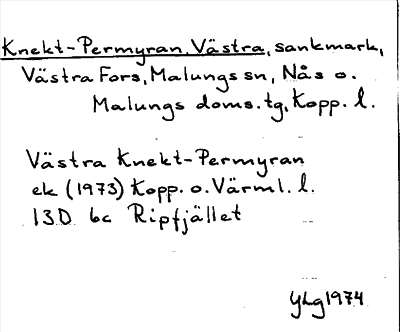 Knekt-Permyran, Västra, sankmark,
Västra Fors, Malungs sn, Nås o.
Malungs doms. tg, Kopp. l.
Västra Knekt-Permyran
ek (1973) Kopp. o. Värml. l.
13D 6c Ripfjället
YLg 1974